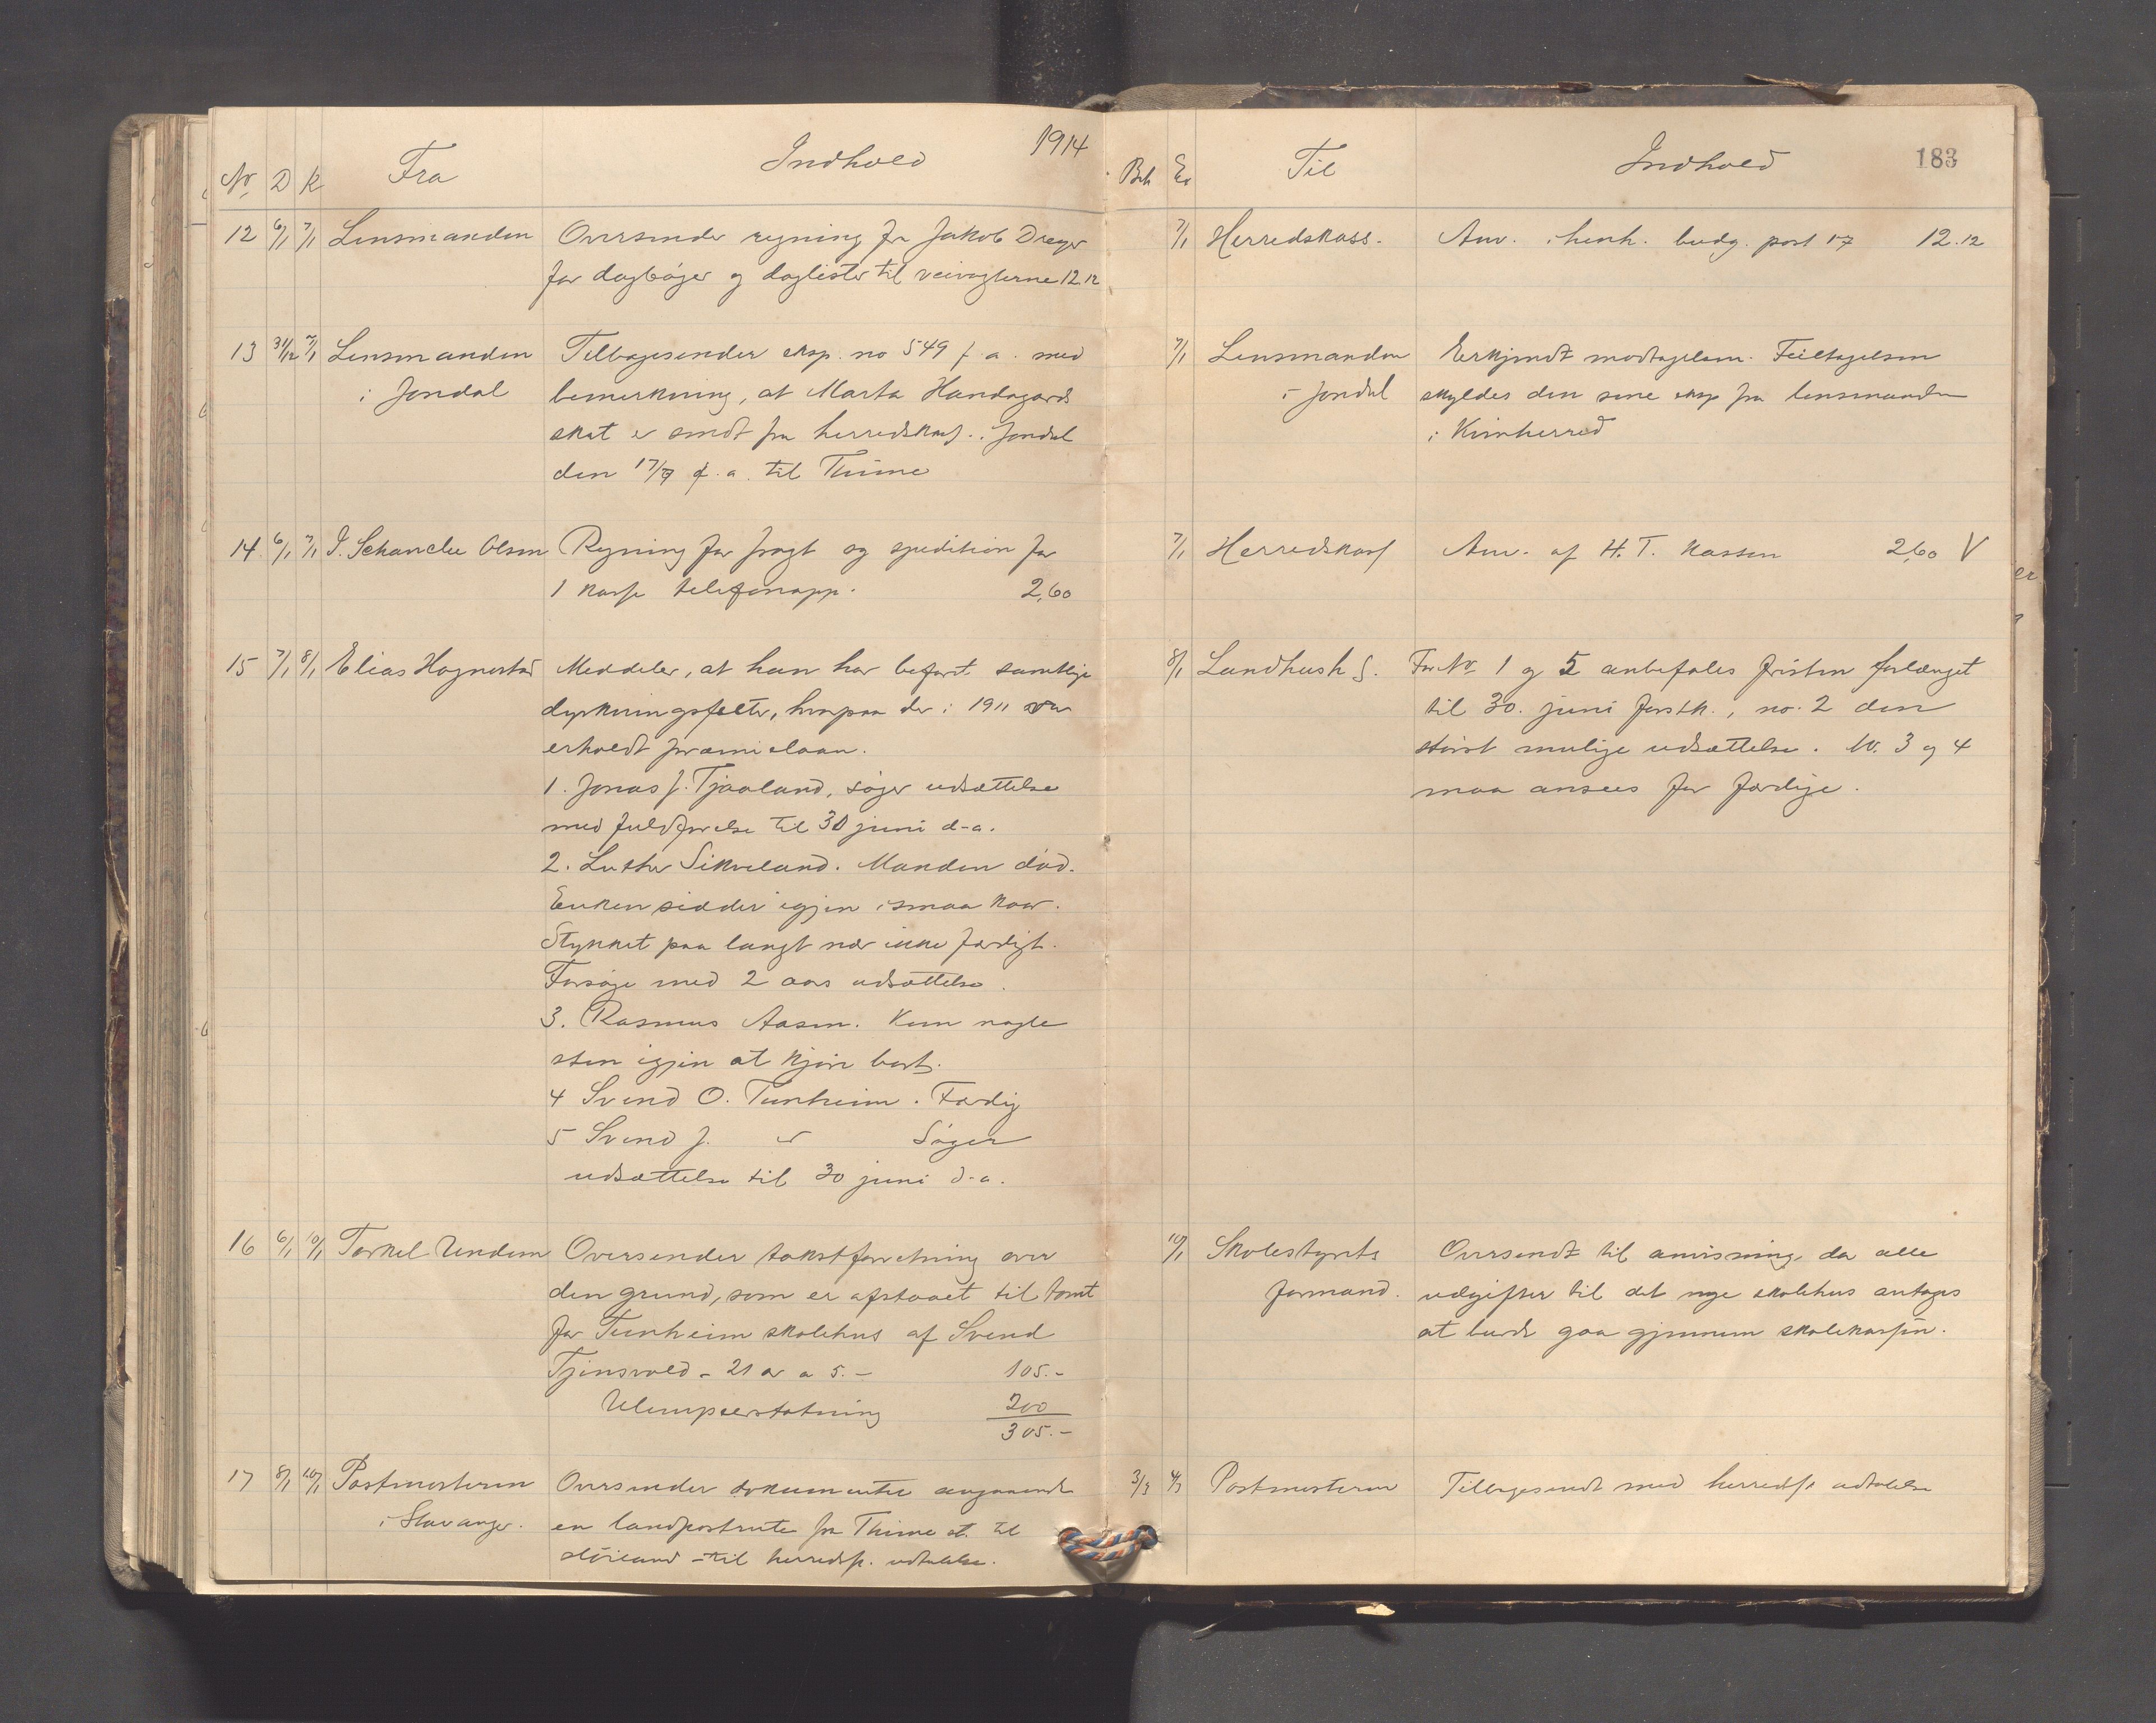 1914
No D K Fra Indhold
12 6/1 7/1 Lensmanden Oversender regning fra Jakob Dreyer
for dagbøger og daglister til veivogterne 12.12
13 31/12 7/1 Lensmanden Tilbagesender eksp. no 549 f. a. med
i Jondal bemerkning, at Marta Handegards
skat er sendt fra herredskas. i Jondal
den 17/7 f. a. til Thime
14 6/1 7/1 J. Schanche Olsen Regning for fragt og spedition for
1 kasse telefonapp. 2,60
15 7/1 8/1 Elias Hognestad Meddeler, at han har befart samtlige
dyrkningsfelter, hvorpaa der i 1911 var
erholdt præmielaan.
1. Jonas J. Tjaaland, søger udsættelse
med fuldførelse til 30 juni d-a.
2. Luther Sikveland. Manden død.
Enken sidder igjen i smaa kaar.
Stykket paa langt nær ikke færdigt.
Forsøge med 2 aars udsættelse.
3. Rasmus Aasen. Kun nogle
sten igjen at kjøre bort.
4 Svend O. Tunheim. Færdig
5 Svend J. " Søger
udsættelse til 30 juni d.a.
16 6/1 10/1 Torkel Undem Oversender takstforretning over
den grund, som er afstaaet til tomt
for Tunheim skolehus af Svend
Tjensvold - 21 ar a 5.- 105.-
Ulempeerstatning 200
305.-
17 8/1 10/1 Postmesteren Oversender dokumenter angaaende
i Stavanger. en landpostrute fra Thime st. til
- til herredsst. udtalelse.
183
Beh Ex Til Indhold
7/1 Herredskass. Anv. i henh. budg. post 17 12.12
7/1 Lensmanden Erkjendt modtagelsen. Feiltagelsen
i Jondal skyldes den sene eksp fra lensmanden
i Kvinherred
7/1 Herredskass Anv. af H. T. kassen 2,60 V
8/1 Landhush S. For No 1 og 5 anbefales fristen forlænget
til 30. juni førstk., no. 2 den
størst mulige udsættelse. No. 3 og 4
maa ansees for færdige.
10/1 Skolestyrets Oversendt til anvisning, da alle
formand. udgifter til det nye skolehus antages
at burde gaa gjennem skolekassen.
3/3 4/3 Postmesteren Tilbagesendt med herredsst udtalelse